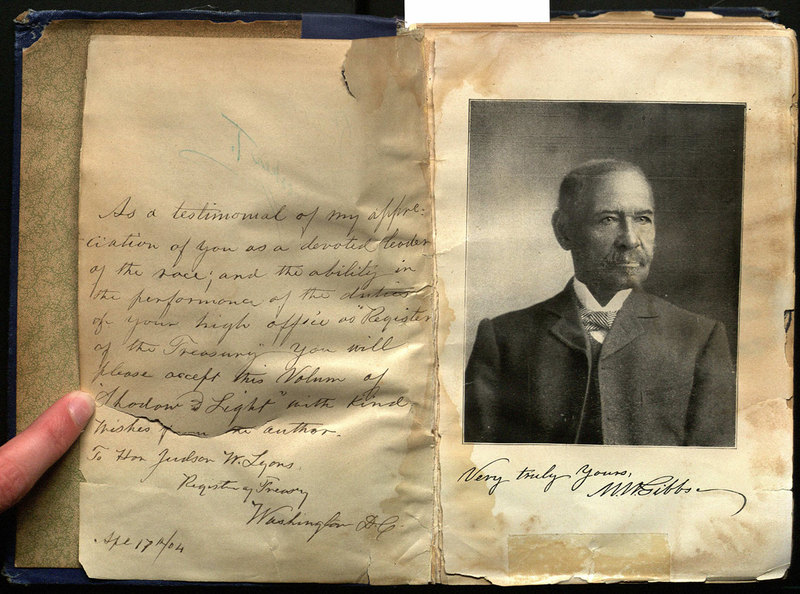 As a testimonial of my appre:
ciation of you as a devoted leader
of the race; and the ability in
the performance of the duties
of your high office as "Register
of the Treasury" you will
please accept this Volum of
"Shadow & Light" with kind
wishes from the author.
To Hon Judson W. Lyons,
Register of Treasury
Washington D.C
Apl 17th/04
Very truly Yours,
M.W. Gibbs